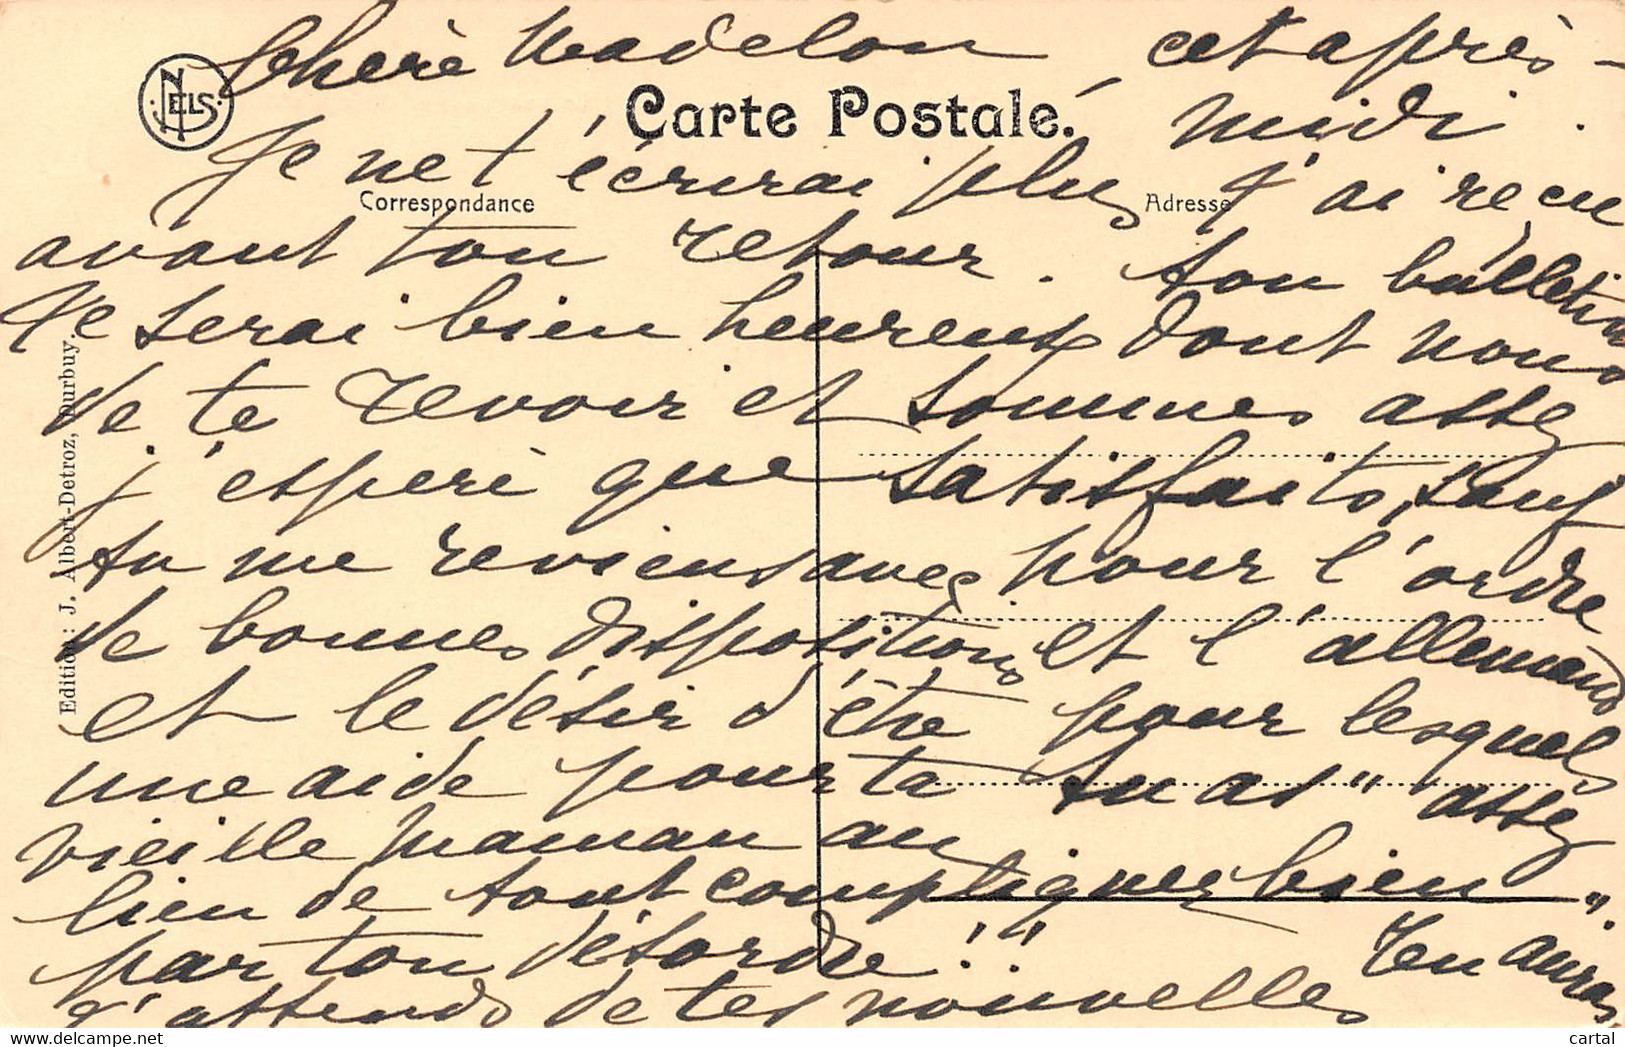 Chère Madelon
Carte Postale.
NELS
Correspondance
Je ne t'écrirai plus
avant ton retour.
Je serai bien heureux
de te revoir et
j'espère que
tu me reviens avec
de bonnes dispositions
et le désir d'être
une aide pour ta
vieille maman au
lieu de tout compliquer
par ton désordre!!
J'attends de tes nouvelles
cet après-
midi.
Adresse
J'ai reçu
ton bulletin
dont nous
sommes assez
satisfaits, sauf
pour l'ordre
et l'allemand
pour lesquels
tu as "assez
bien".
Tu auras
Edition: J. Albert-Detroz, Durbuy.
cartal